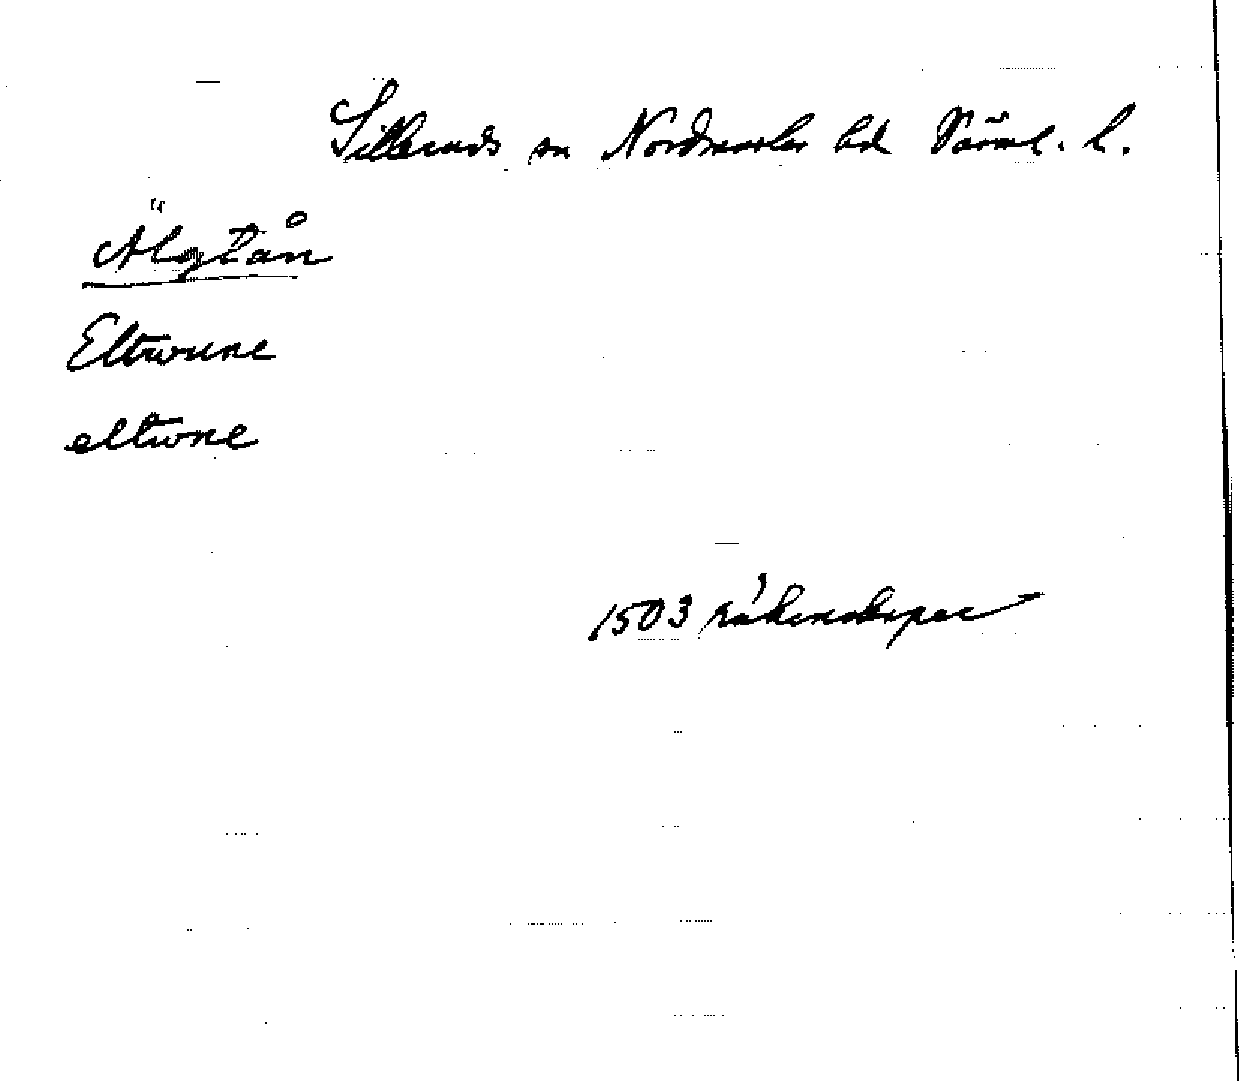 Silleruds sn Nordmarks hd Värml. l.
Älgtån
Eltwune
eltwne
1503 räkenskaper